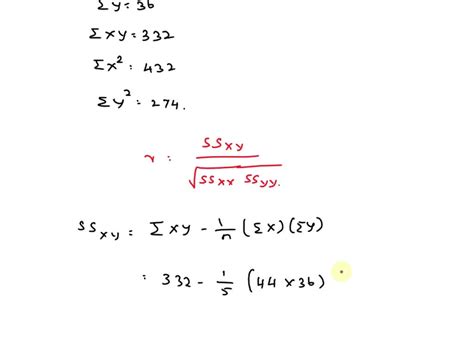 Σy=36
Σxy=332
Σx²=432
Σy²=274.
r = SSxy / √SSxx SSyy.
SSxy = Σxy - 1/n (Σx)(Σy)
= 332 - 1/5 (44 × 36)